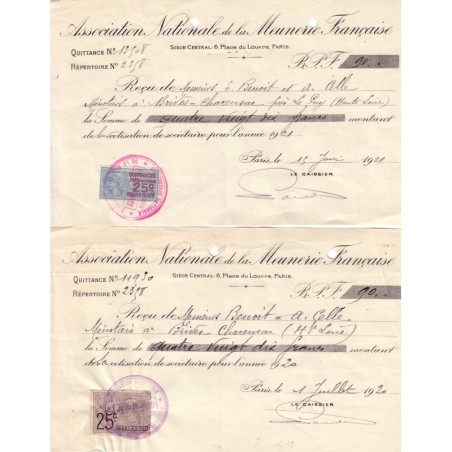 Association Nationale de la Meunerie Française
Siège Central: 6, Place du Louvre, Paris.
Quittance Nº 12508
Répertoire Nº 2358
B.P.F. 90
Reçu de Messieurs Benoit et A. Celle
Minotiers à Brives-Charensac près Le Puy (Haute Loire)
la Somme de quatre vingt dix francs montant
de la cotisation de sociétaire pour l'année 1921
Paris le 15 Juin 1921
LE CAISSIER
QUITTANCES
25c
Association Nationale de la Meunerie Française
Siège Central: 6, Place du Louvre, Paris.
Quittance Nº 11930
Répertoire Nº 2358
B.P.F. 90
Reçu de Messieurs Benoit et A. Celle
Minotiers à Brives Charensac (Hte Loire)
la Somme de quatre vingt dix francs montant
de la cotisation de sociétaire pour l'année 1920
Paris le 1 Juillet 1920
LE CAISSIER
25c